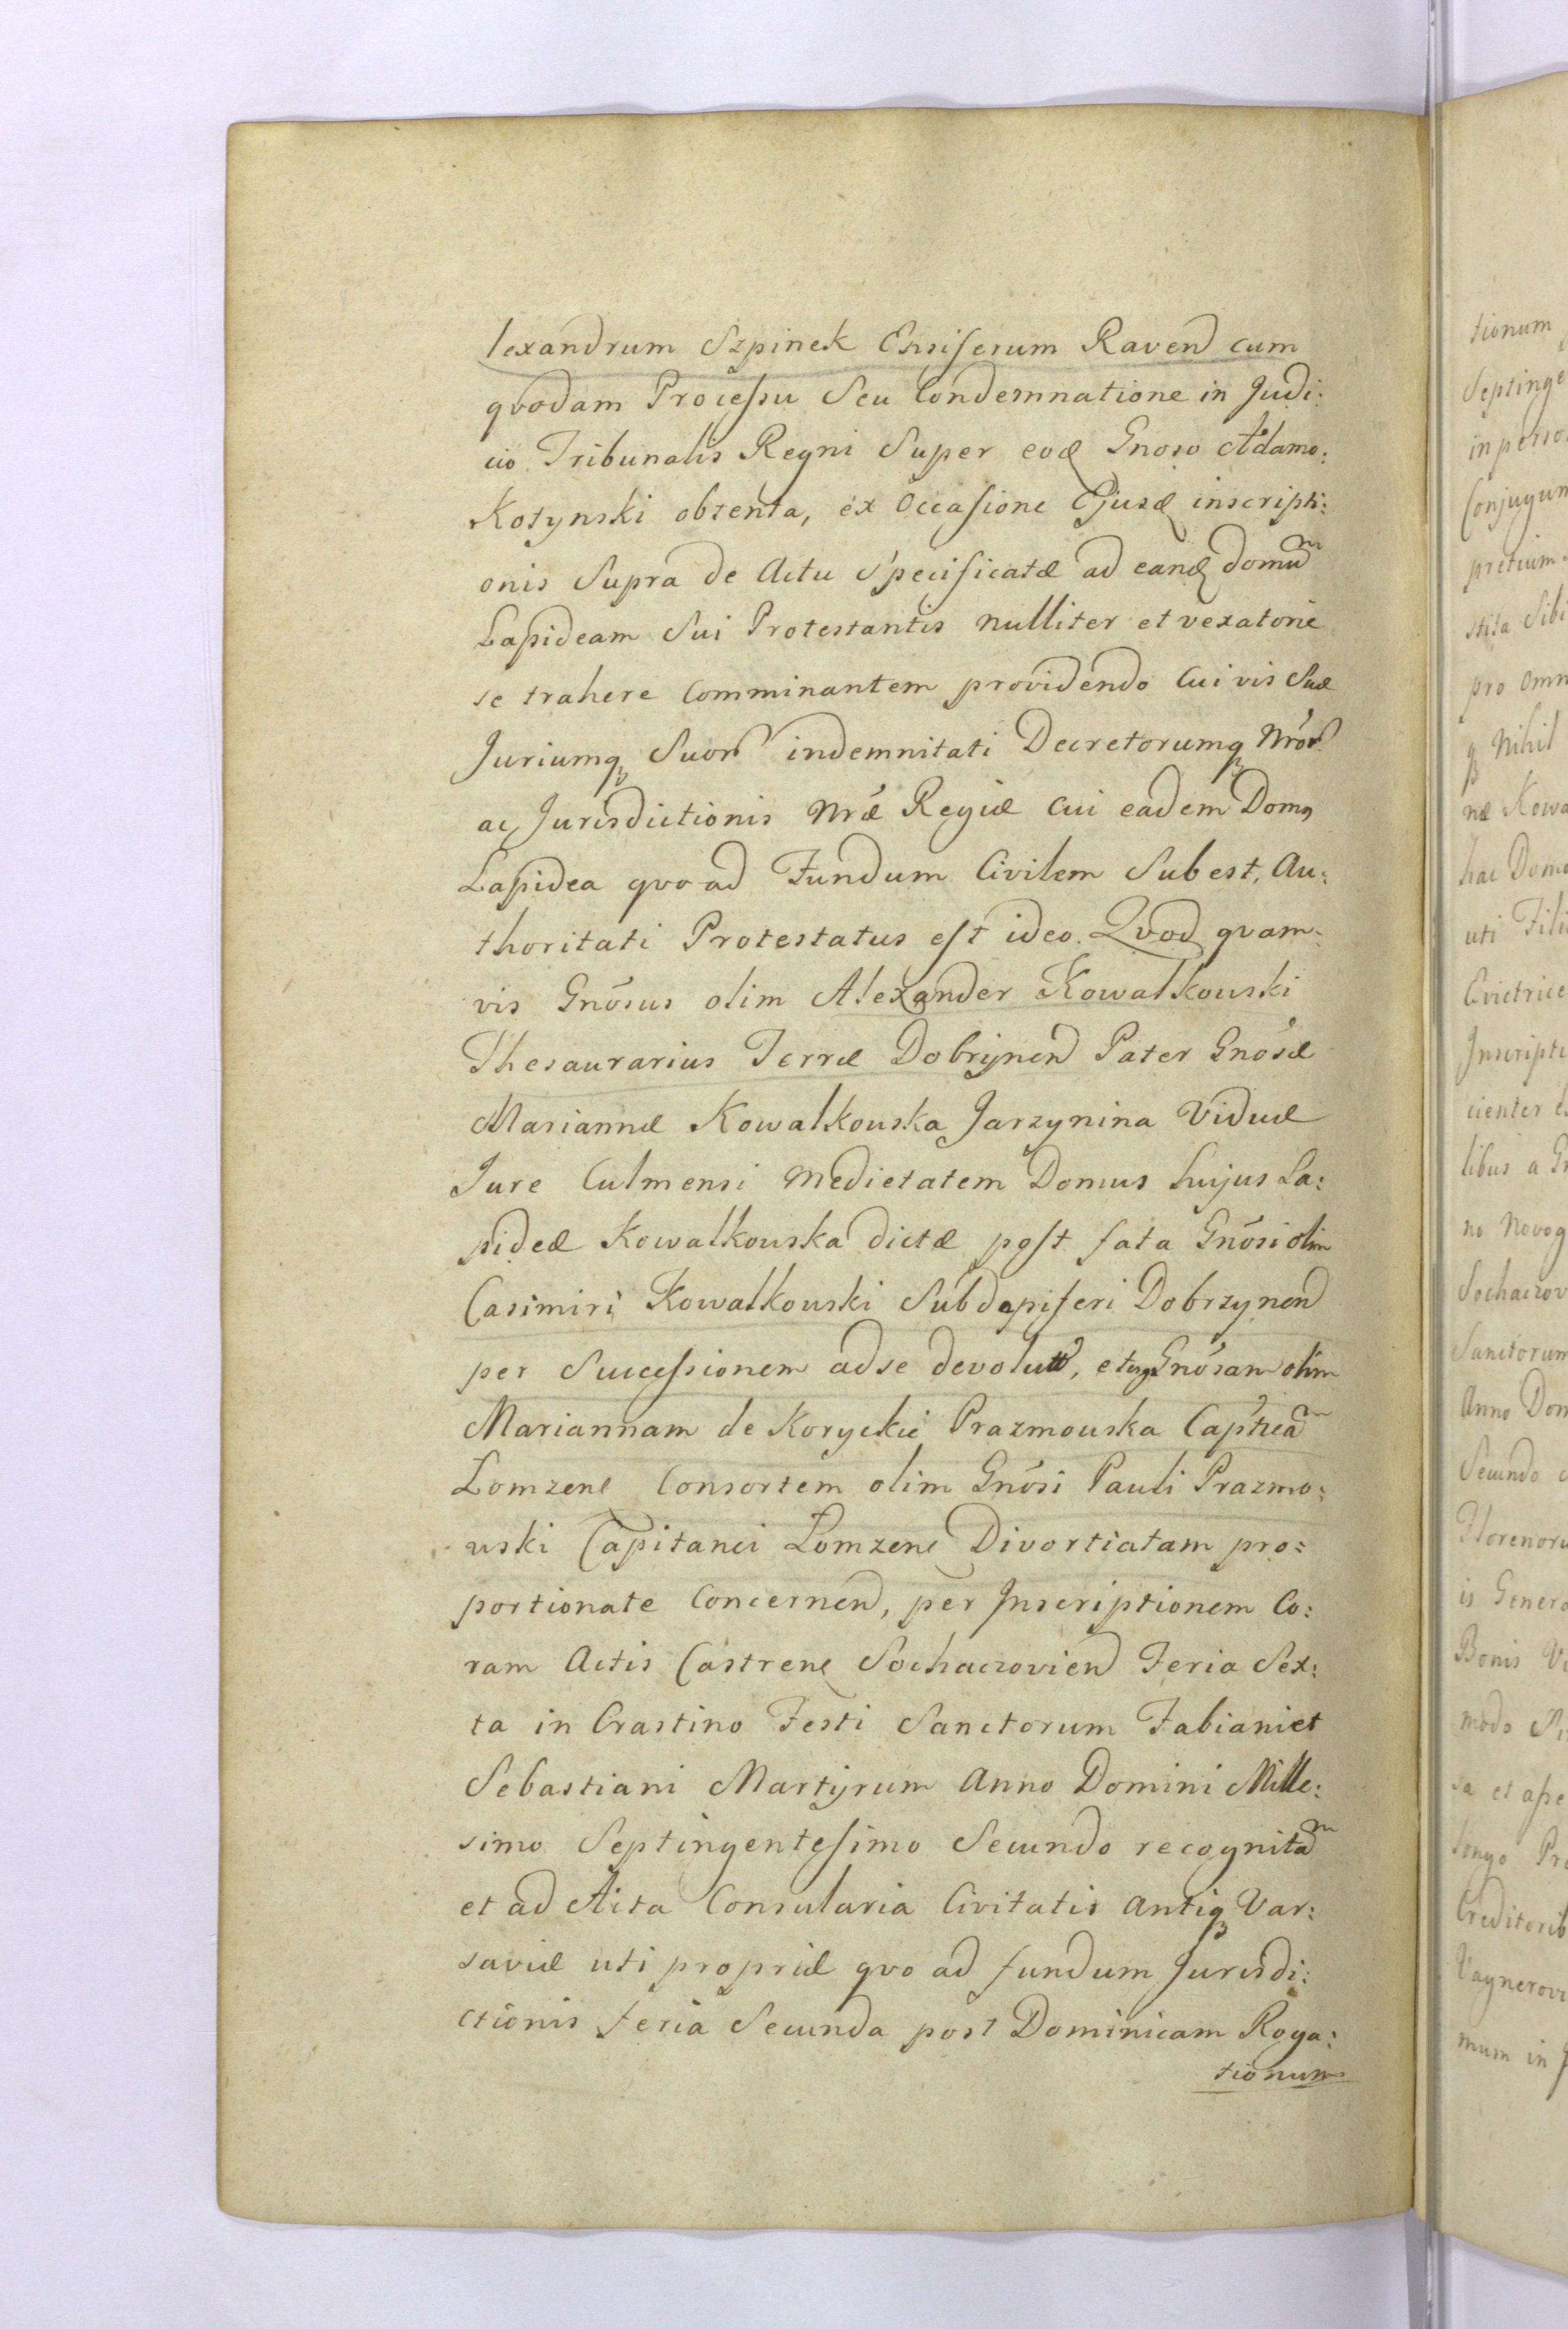 lexandrum Szpinek Ensiferum Ravend cum
qvodam Processu Seu Condemnatione in Judi:
cio Tribunalis Regni Super eod Gnoso Adamo:
Kotynski obtenta, ex Occasione Ejusd inscripti:
onis Supra de Actu Specificatæ ad eand domum
Lapideam Sui Protestantis nulliter et vexatorie
se trahere Comminantem providendo Cuivis Suæ
Juriumq Suor indemnitati Decretorumq Nrõr
ac Jurisdictionis Nræ Regiæ Cui eadem Domq
Lapidea qvo ad Fundum Civilem Subest, Au:
thoritati Protestatus est ideo. Qvod qvam:
vis Gnõsus olim Alexander Kowalkouski
Thesaurarius Terræ Dobrynend Pater Gnosæ
Mariannæ Kowalkouska Jarzynina Viduæ
Jure Culmensi Medietatem Domus hujus La:
pideæ Kowalkouska dictæ post fata Gnõsi olim
Casimiri Kowalkouski Subdapiferi Dobrzynend
per Successionem ad se devolut, Gnõsam olim
Mariannam de Koryckie Prazmouska Captnea
Lomzene Consortem olim Gnõsi Pauli Prazmo:
uski Capitanei Lomzene Divortiatam pro:
portionate Concernend, per Inscriptionem Co:
ram Actis Castrene Sochaczoviend Feria Sex:
ta in Crastino Festi Sanctorum Fabiani et
Sebastiani Martyrum Anno Domini Mille:
simo Septingentesimo Secundo recognitam
et ad Acta Consularia Civitatis Antiq Var:
saviæ uti propriæ qvo ad fundum Jurisdi:
ctionis feria Secunda post Dominicam Roga:
tionum
tionum
Septinge
in perso
Conjugum
pretium
stita Sibi
pro omn
q Nihil
næ Kowa
hac Domo
uti Fili
Evictrice
Inscripti
cienter
libus a
no Novog
Sochaczov
Sanctorum
Anno Dom
Secundo
Florenoru
is Genera
Bonis
modo
sa et ape
longo
Creditorib
Vagnerovi
mum in